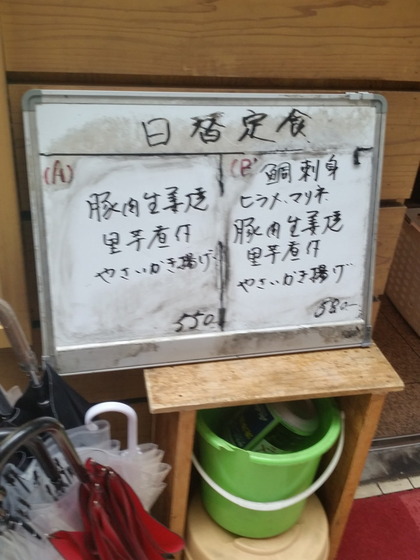 日替定食
(A)
豚肉生姜焼
里芋煮付
やさいかき揚げ
550
(B)
鯛刺身
ヒラメマリネ
豚肉生姜焼
里芋煮付
やさいかき揚げ
880-